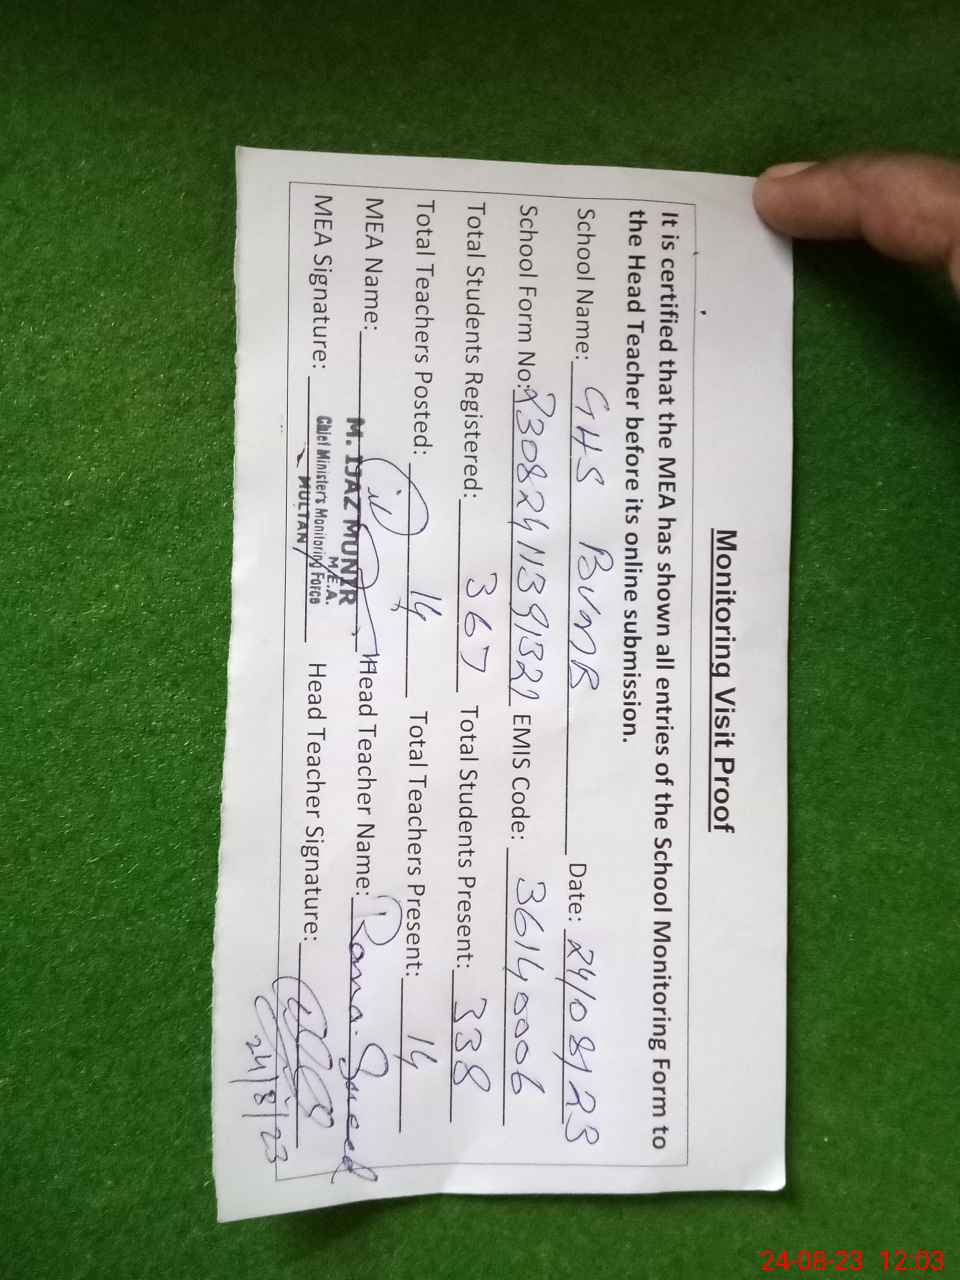 Monitoring Visit Proof
It is certified that the MEA has shown all entries of the School Monitoring Form to
the Head Teacher before its online submission.
School Name: GHS Date: 24/08/23
School Form No: EMIS Code: 36140006
Total Students Registered: 367 Total Students Present: 338
Total Teachers Posted: 14 Total Teachers Present: 14
MEA Name: M. IJAZ MUNIR Head Teacher Name: Rana Saeed
M.E.A.
MEA Signature: Chief Minister's Monitoring Force Head Teacher Signature:
MULTAN
24/8/23
24-08-23 12:03